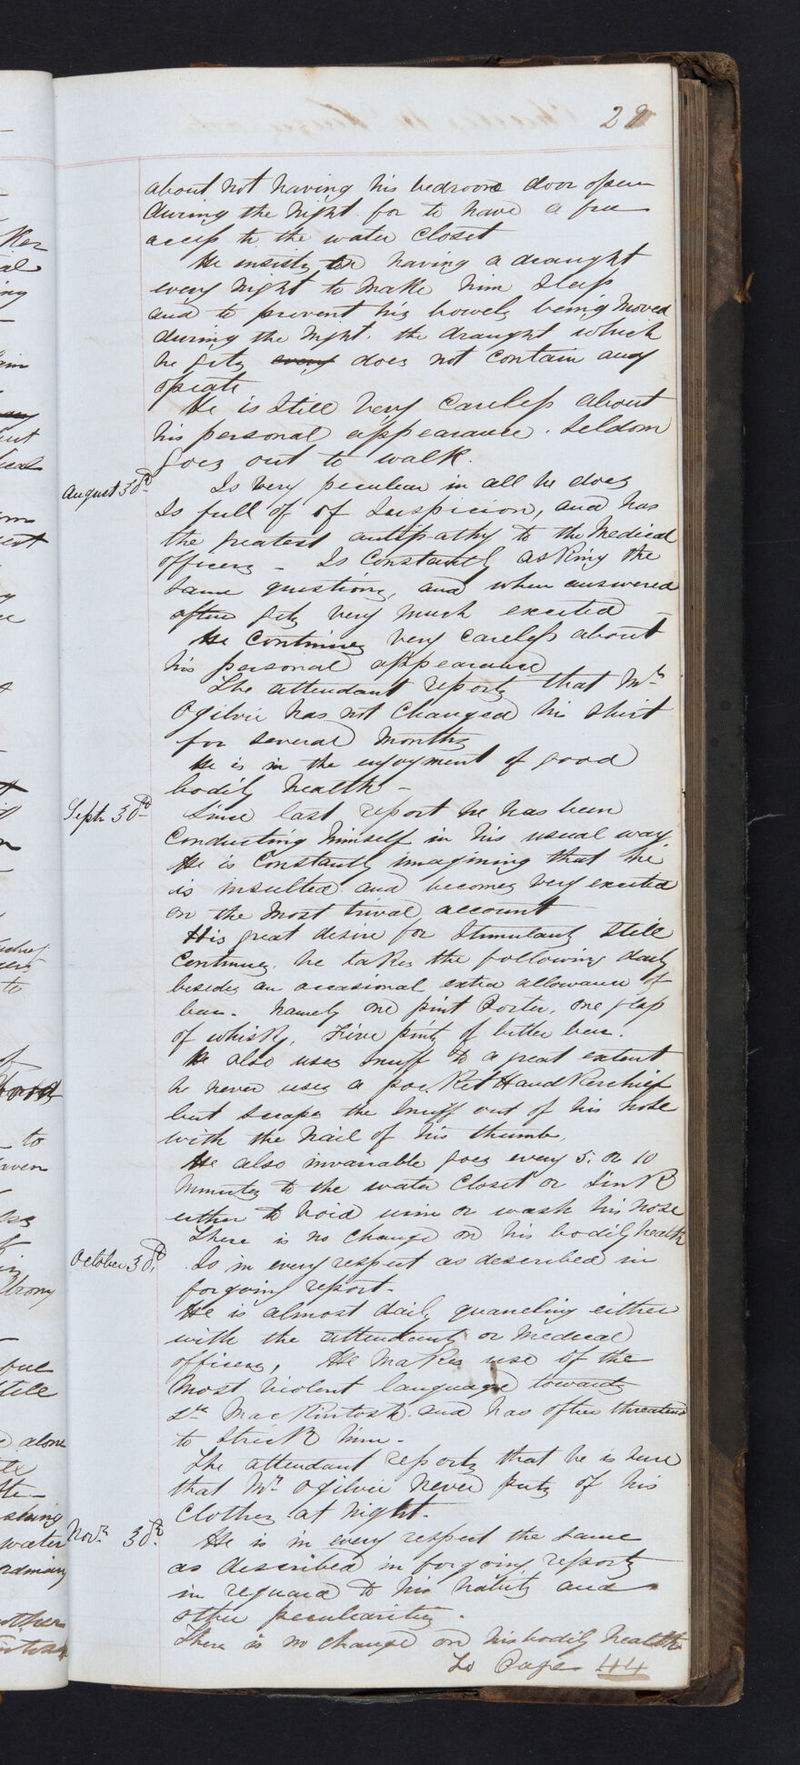 29
about not having his bedroom door open
during the night for to have a free
access to the water closet
He insists on having a draught
every night to make him sleep
and to prevent his bowels being moved
during the night. the draught which
he gets every does not contain any
opiate
He is still very careless about
his personal appearance. Seldom
goes out to walk.
August 30th Is very peculiar in all he does
Is full of of suspicion, and has
the greatest antipathy to the Medical
officers - Is constantly asking the
same questions, and when answered
often gets very much excited -
He continues very careless about
his personal appearance
The attendant reports that Mr
Ogilvie has not changed his shirt
for several months
He is in the enjoyment of good
bodily health -
Septr 30th Since last report he has been
conducting himself in his usual way
He is constantly imagining that he
is insulted and becomes very excited
on the most trival account
His great desire for stimulants still
continues. he takes the following daily
besides an occasional extra allowance of
beer. namely one pint Porter, one glass
of whisky, Five pints of bitter beer.
He also uses snuff to a great extent
he never uses a pocket Handkerchief
but scrapes the snuff out of his nose
with the nail of his thumb.
He also invariable goes every 5. or 10
minutes to the water closet or sink
either to void urine or wash his nose
There is no change on his bodily health
October 30th Is in every respect as described in
forgoing report -
He is almost daily quarreling either
with the attendants or medical
officers, He makes use of the
most violent language towards
Dr MacKintosh and has often threatened
to strick him -
The attendant reports that he is sure
that Mr Ogilvie never puts of his
clothes at night.
Novr 30th He is in every respect the same
as described in forgoing reports
in reguard to his habits and
other peculiarities.
There is no change on his bodily health
To Page 44